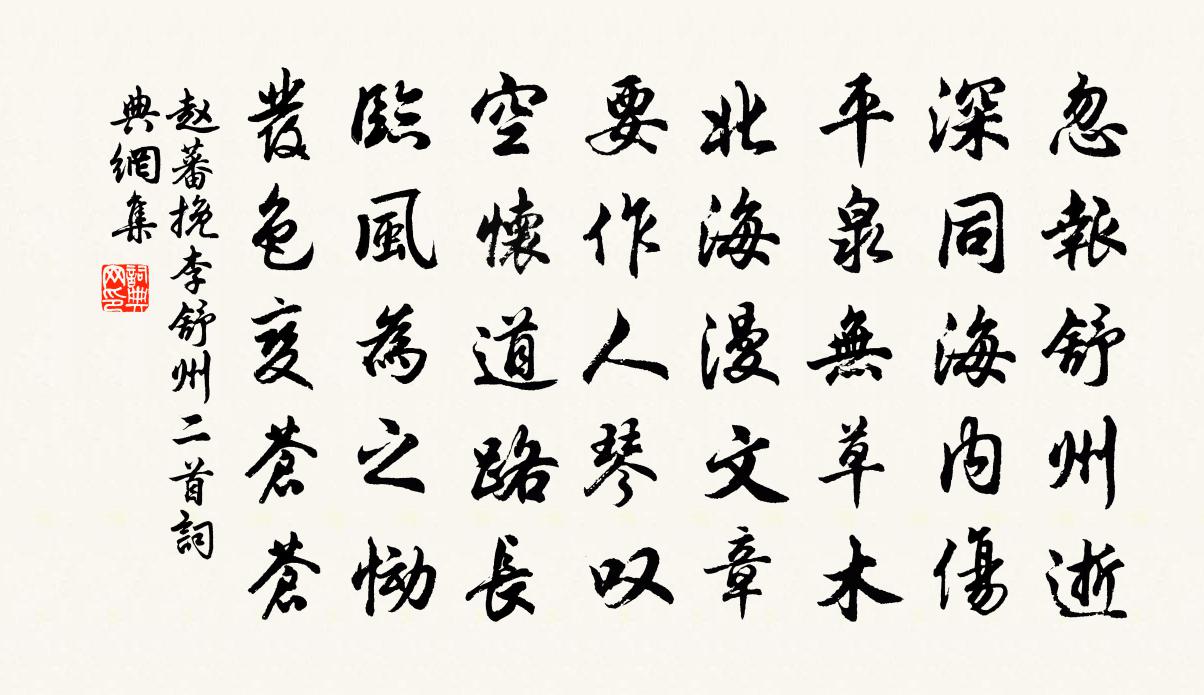 忽報舒州逝
深同海内傷
平泉無草木
北海漫文章
要作人琴叹
空懷道路長
臨風為之慟
髮色变蒼蒼
赵蕃挽李舒州二首詞
典網集
詞典
网印